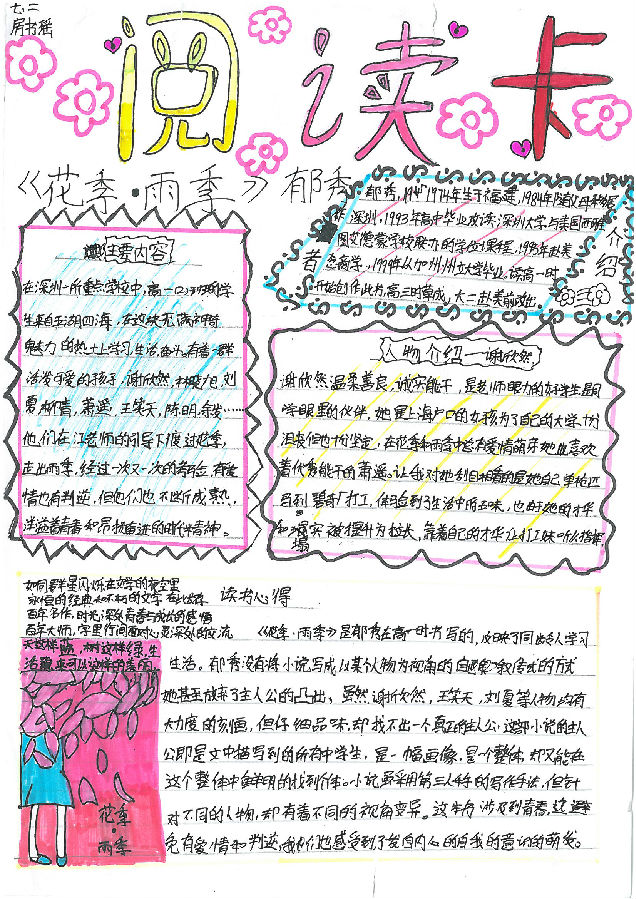 七.二
阅读卡
《花季·雨季》郁秀
作者介绍
郁秀，1974年生于福建，1984年随父母移居
深圳，1993年高中毕业攻读深圳大学与美国西雅
图文德蒙学校联办的学位课程，1995年赴美
念商学，1999年从加州州立大学毕业，读高一时
开始创作此书，高三时草成，大二赴美前改出。
主要内容
在深圳一所重点学校中，高一(2)班的同学
生来自五湖四海，在这块充满神奇
魅力的热土上学习，生活，奋斗，有着一群
活泼可爱的孩子，谢欣然，林晓旭，刘
夏，柳清，萧遥，王笑天，陈明，余发……
他们在江老师的引导下度过花季，
走出雨季，经过一次又一次的考验，有爱
情也有判逆，但他们也不断成熟，
洋溢着青春和昂扬奋进的时代精神。
人物介绍——谢欣然
谢欣然温柔善良，诚实能干，是老师眼力的好学生是同
学眼里的伙伴，她是上海户口的女孩为了自己的大学十分
沮丧但也十分坚定，在花季和雨季中总有爱情萌牙她也喜欢
着优秀能干的萧遥。让我对她刮目相看的是她自己单枪匹
马到打工，体验到了生活中的五味，也由于她的才华
和塌实被提升为拉长，靠着自己的才华让打工妹听从指挥
读书心得
如同群星闪烁在文学的夜空里
永恒的经典和不朽的文字在此出存
百年名作，时光深处青春与成长的感悟
百年大师，字里行间面对心灵深处的交流
天这样蓝，树这样绿，生
活原来可以这样的美丽
花季
·
雨季
《花季·雨季》是郁秀在高一时书写的，反映了同龄人学习
生活。郁秀没有将小说写成以某个人物为视角的自述或叙传式的方式
她甚至放弃了主人公的凸出，虽然谢欣然，王笑天，刘夏等人物均有
大力度的刻恒，但仔细品味，却找不出一个真正的主人公，这部小说的主人
公即是文中描写到的所有中学生，是一幅画像，是一个整体，却又能在
这个整体中鲜明的找到个体。小说虽采用第三人称的写作手法，但针
对不同的人物，却有着不同的视角变异。这本书涉及到青春，这难
免有爱情和判逆，我们也感受到了发自内心的自我的意识的萌发。